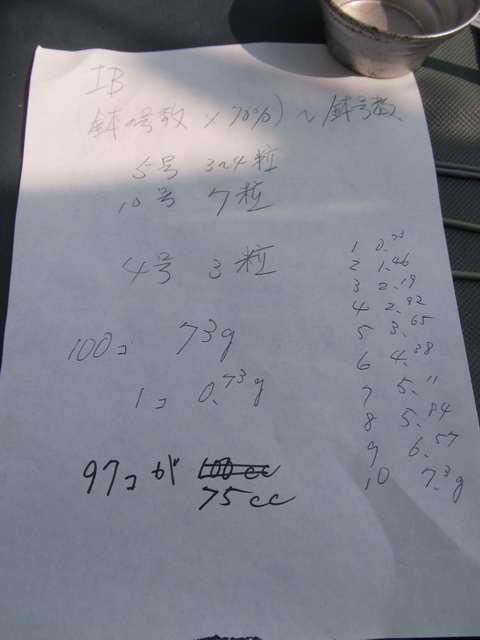 IB
鉢の号数 × 70%) ~ 鉢号数
5号 3~4粒
10号 7粒
4号 3粒
100コ 73g
1コ 0.73g
97コが 100cc
75cc
1 0.73
2 1.46
3 2.19
4 2.92
5 3.65
6 4.38
7 5.11
8 5.84
9 6.57
10 7.3g